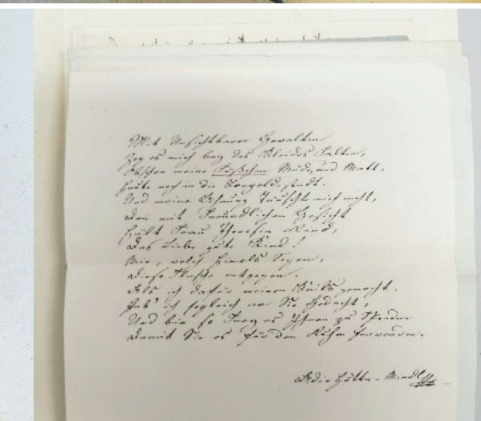 Mit Unsichtbaren Gewalten
Zog es mich bey des Kleides Falten,
Obschon meine Füßchen Müde, und Matt,
Heute noch in die Leopold, stadt.
Und meine Ahnung Täuschte mich nicht,
Den mit Freundlichen Gesicht
Hält Frau Theresia Kind,
Das Liebe gute Kind!
Mir, welch Himels Segen,
Diese entgegen.
Als ich dafür meinen gemacht,
Hab' ich sogleich an Sie Gedacht,
Und bin so frey es Ihnen zu Spenden
Damit Sie es für den verwenden.